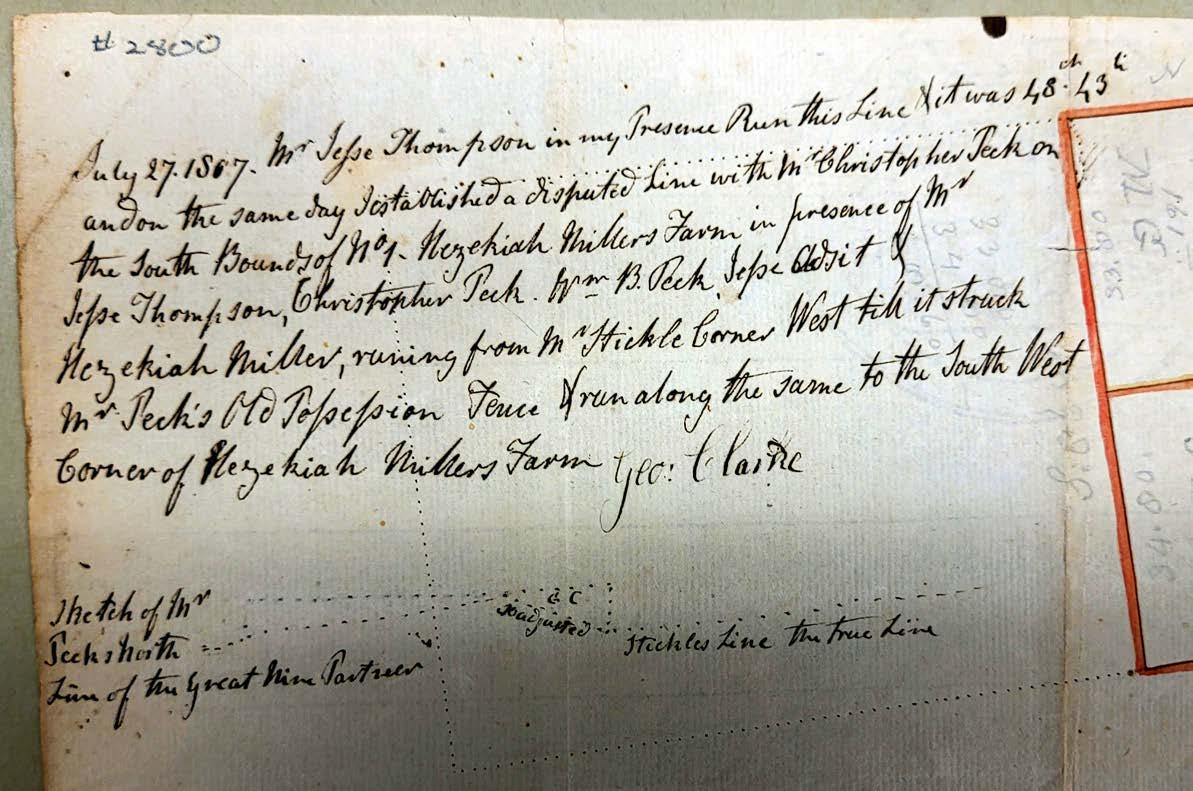 # 2800
July 27. 1807. Mr Jesse Thompson in my Presence Run this Line & it was 48ch. 43li
and on the same day I established a disputed Line with Mr Christopher Peck on
the South Bounds of No 1. Hezekiah Millers Farm in presence of Mr
Jesse Thompson, Christopher Peck. Wm B. Peck, Jesse Adsit &
Hezekiah Miller, runing from Mr Stickle Corner West till it struck
Mr Peck's Old Possession Fence & run along the same to the South West
Corner of Hezekiah Millers Farm Geo: Clarke
Sketch of Mr
Pecks North
Line of the Great Nine Partners
G C
adjusted
Stickles Line the true Line
33.80
34.80